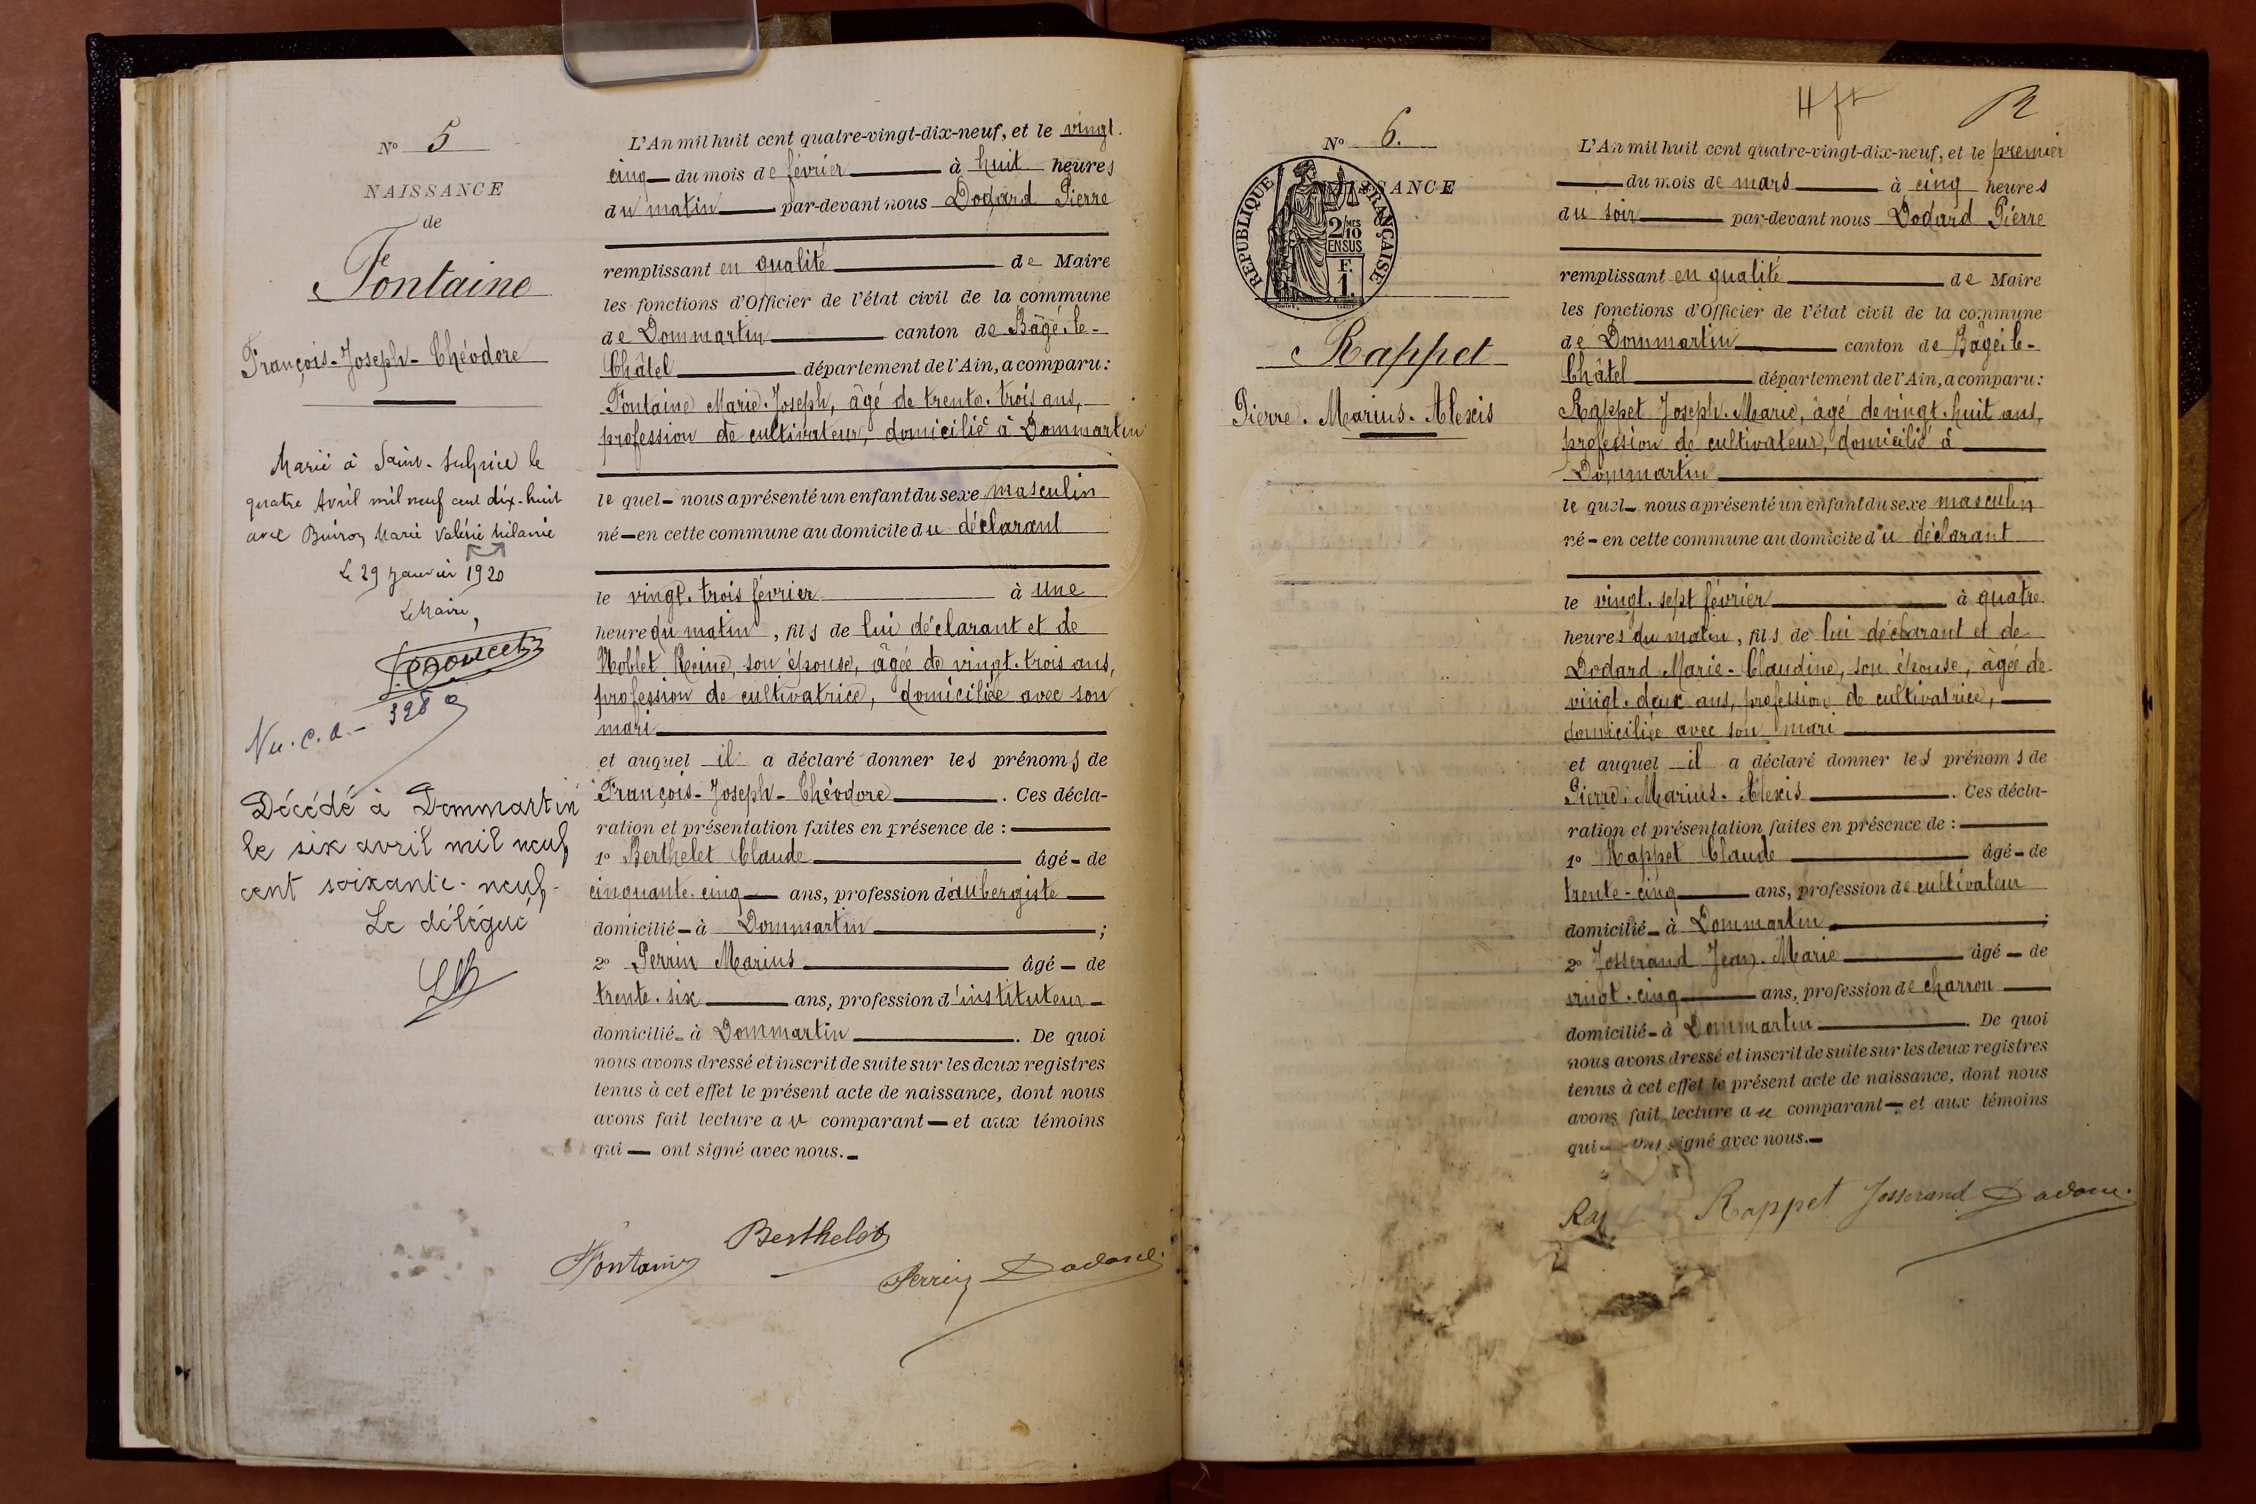 Nº 5
NAISSANCE
de
Fontaine
François-Joseph-Théodore
Marié à Saint-Sulpice le
quatre Avril mil neuf cent dix-huit
avec Buiron Marie Valérie Mélanie
Le 29 Janvier 1920
Le Maire,
Décédé à Dommartin
le six avril mil neuf
cent soixante-neuf-
Le délégué
L'An mil huit cent quatre-vingt-dix-neuf, et le vingt.
cinq du mois de février à huit heures
du matin par-devant nous Dodard Pierre
remplissant en qualité de Maire
les fonctions d'Officier de l'état civil de la commune
de Dommartin canton de Bâgé-le-
Châtel département de l'Ain, a comparu:
Fontaine Marie-Joseph, âgé de trente-trois ans,
profession de cultivateur, domicilié à Dommartin
le quel nous a présenté un enfant du sexe masculin
né en cette commune au domicile du déclarant
le vingt-trois février à une
heure du matin, fils de lui déclarant et de
Noblet Reine, son épouse, âgée de vingt-trois ans,
profession de cultivatrice, domiciliée avec son
mari
et auquel il a déclaré donner les prénoms de
François-Joseph-Théodore. Ces décla-
ration et présentation faites en présence de :
1º Berthelet Claude âgé de
cinquante-cinq ans, profession d'aubergiste
domicilié à Dommartin ;
2º Perrin Marius âgé de
trente-six ans, profession d'instituteur
domicilié à Dommartin. De quoi
nous avons dressé et inscrit de suite sur les deux registres
tenus à cet effet le présent acte de naissance, dont nous
avons fait lecture au comparant et aux témoins
qui ont signé avec nous.
Berthelet
Fontaine
Perrin Dodard
Hft
R
Nº 6.
NAISSANCE
REPUBLIQUE FRANÇAISE
2/10 MES
EN SUS
F.
1.
Rappet
Pierre-Marius-Alexis
L'An mil huit cent quatre-vingt-dix-neuf, et le premier
du mois de mars à cinq heures
du soir par-devant nous Dodard Pierre
remplissant en qualité de Maire
les fonctions d'Officier de l'état civil de la commune
de Dommartin canton de Bâgé-le-
Châtel département de l'Ain, a comparu:
Rappet Joseph-Marie, âgé de vingt-huit ans,
profession de cultivateur, domicilié à
Dommartin
le quel nous a présenté un enfant du sexe masculin
né en cette commune au domicile du déclarant
le vingt-sept février à quatre
heures du matin, fils de lui déclarant et de
Dodard Marie-Claudine, son épouse, âgée de
vingt-deux ans, profession de cultivatrice,
domiciliée avec son mari
et auquel il a déclaré donner les prénoms de
Pierre-Marius-Alexis. Ces décla-
ration et présentation faites en présence de :
1º Rappet Claude âgé de
trente-cinq ans, profession de cultivateur
domicilié à Dommartin ;
2º Josserand Jean-Marie âgé de
vingt-cinq ans, profession de charron
domicilié à Dommartin. De quoi
nous avons dressé et inscrit de suite sur les deux registres
tenus à cet effet le présent acte de naissance, dont nous
avons fait lecture au comparant et aux témoins
qui ont signé avec nous.
Rappet Josserand Dodard